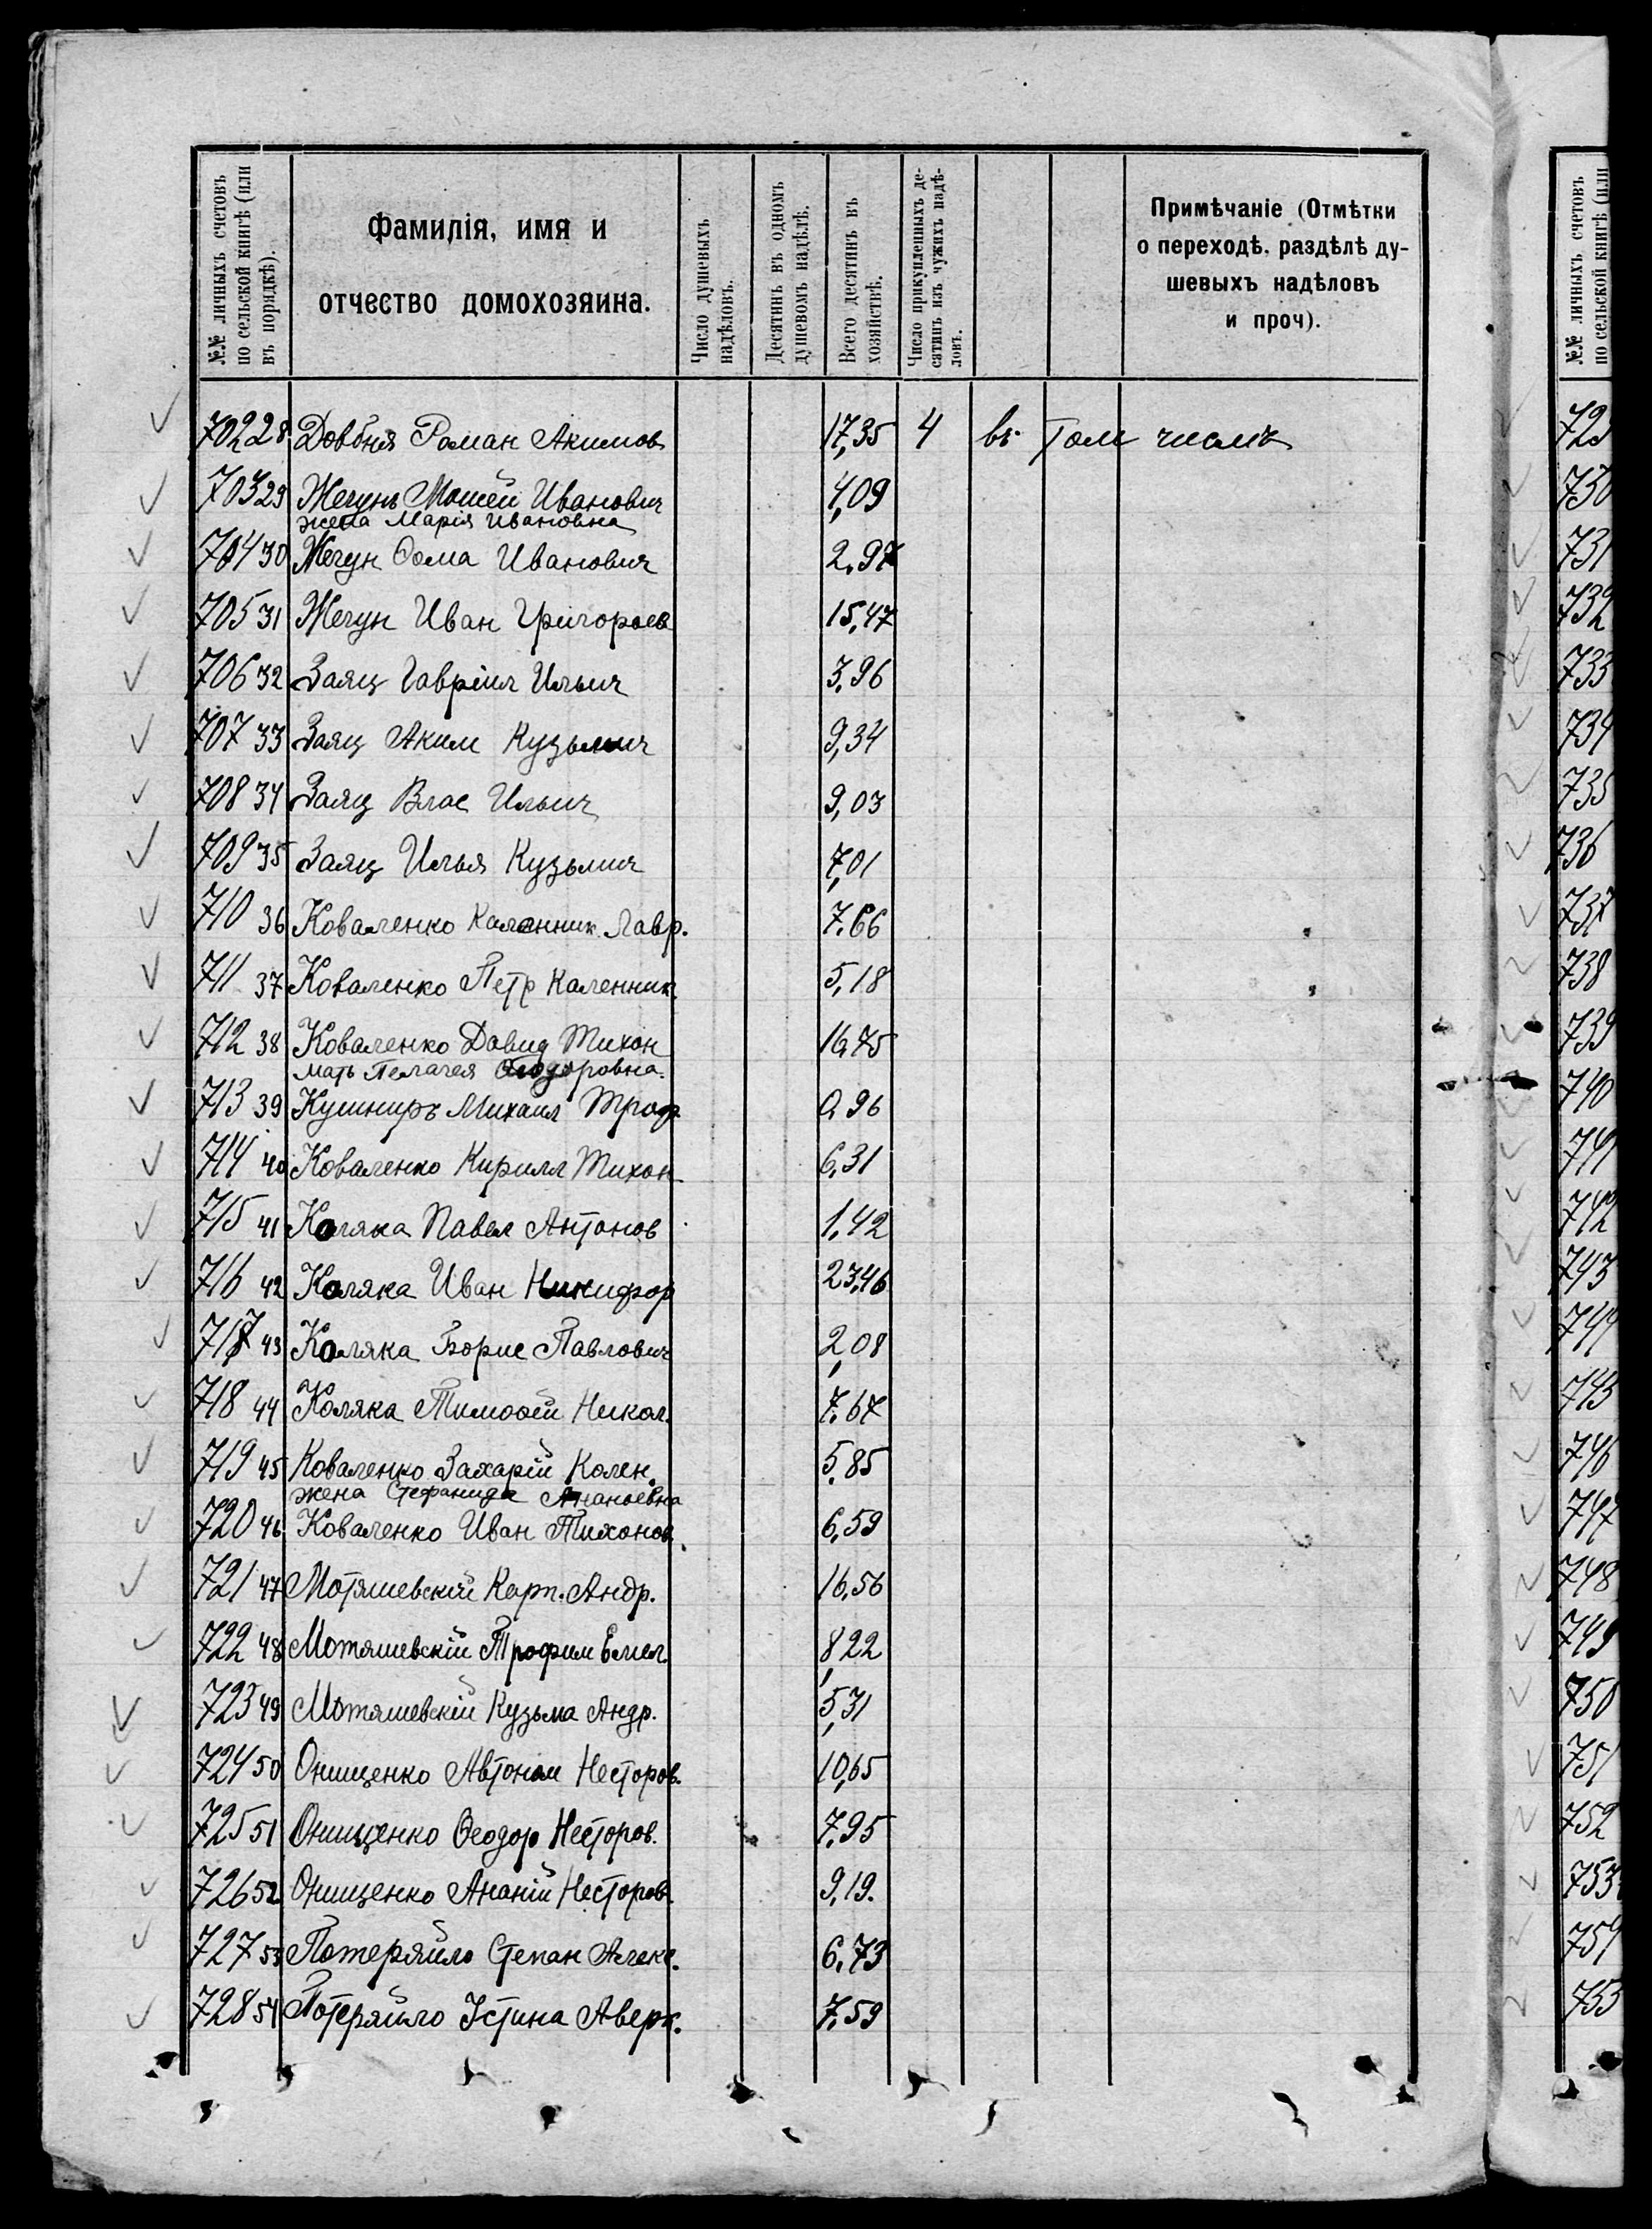 №№ личныхъ счетовъ
по сельской книгѣ (или
въ порядкѣ).
Фамилія, имя и
отчество домохозяина.
Число душевыхъ
надѣловъ.
Десятинъ въ одномъ
душевомъ надѣлѣ.
Всего десятинъ въ
хозяйствѣ.
Число прикупленныхъ де-
сятинъ изъ чужихъ надѣ-
ловъ.
Примѣчаніе (Отмѣтки
о переходѣ, раздѣлѣ ду-
шевыхъ надѣловъ
и проч).
702 28 Довбня Роман Акимов 17,35 4 въ том числѣ
703 29 Жегунъ Мойсей Иванович 4,09
жена Марія Ивановна
704 30 Жегун Ѳома Иванович 2,97
705 31 Жегун Иван Григорьев 15,47
706 32 Заяц Гавріил Ильич 3,96
707 33 Заяц Аким Кузьмич 9,34
708 34 Заяц Влас Ильич 9,03
709 35 Заяц Илья Кузьмич 7,01
710 36 Коваленко Каленник Лавр. 7,66
711 37 Коваленко Петр Каленник. 5,18
712 38 Коваленко Давид Тихон 16,75
мать Пелагея Ѳеодоровна.
713 39 Кушниръ Михаил Троф. 0,96
714 40 Коваленко Кирилл Тихон 6,31
715 41 Коляка Павел Антонов 1,42
716 42 Коляка Иван Никифор 23,46
717 43 Коляка Борис Павлович 2,08
718 44 Коляка Тимофѣй Никол. 7,67
719 45 Коваленко Захарій Кален. 5,85
жена Стефанида Ананьевна
720 46 Коваленко Иван Тихонов. 6,59
721 47 Мотяшевскій Карп. Андр. 16,56
722 48 Мотяшевскій Трофим Емел. 8,22
723 49 Мотяшевскій Кузьма Андр. 5,31
724 50 Онищенко Автоном Несторов. 10,65
725 51 Онищенко Ѳеодор Несторов. 7,95
726 52 Онищенко Ананій Несторов. 9,19.
727 53 Потеряйло Степан Алекс. 6,73
728 54 Потеряйло Устина Аверк. 7,59
№№ личныхъ счетовъ
по сельской книгѣ (или
729
730
731
732
733
734
735
736
737
738
739
740
741
742
743
744
745
746
747
748
749
750
751
752
753
754
755